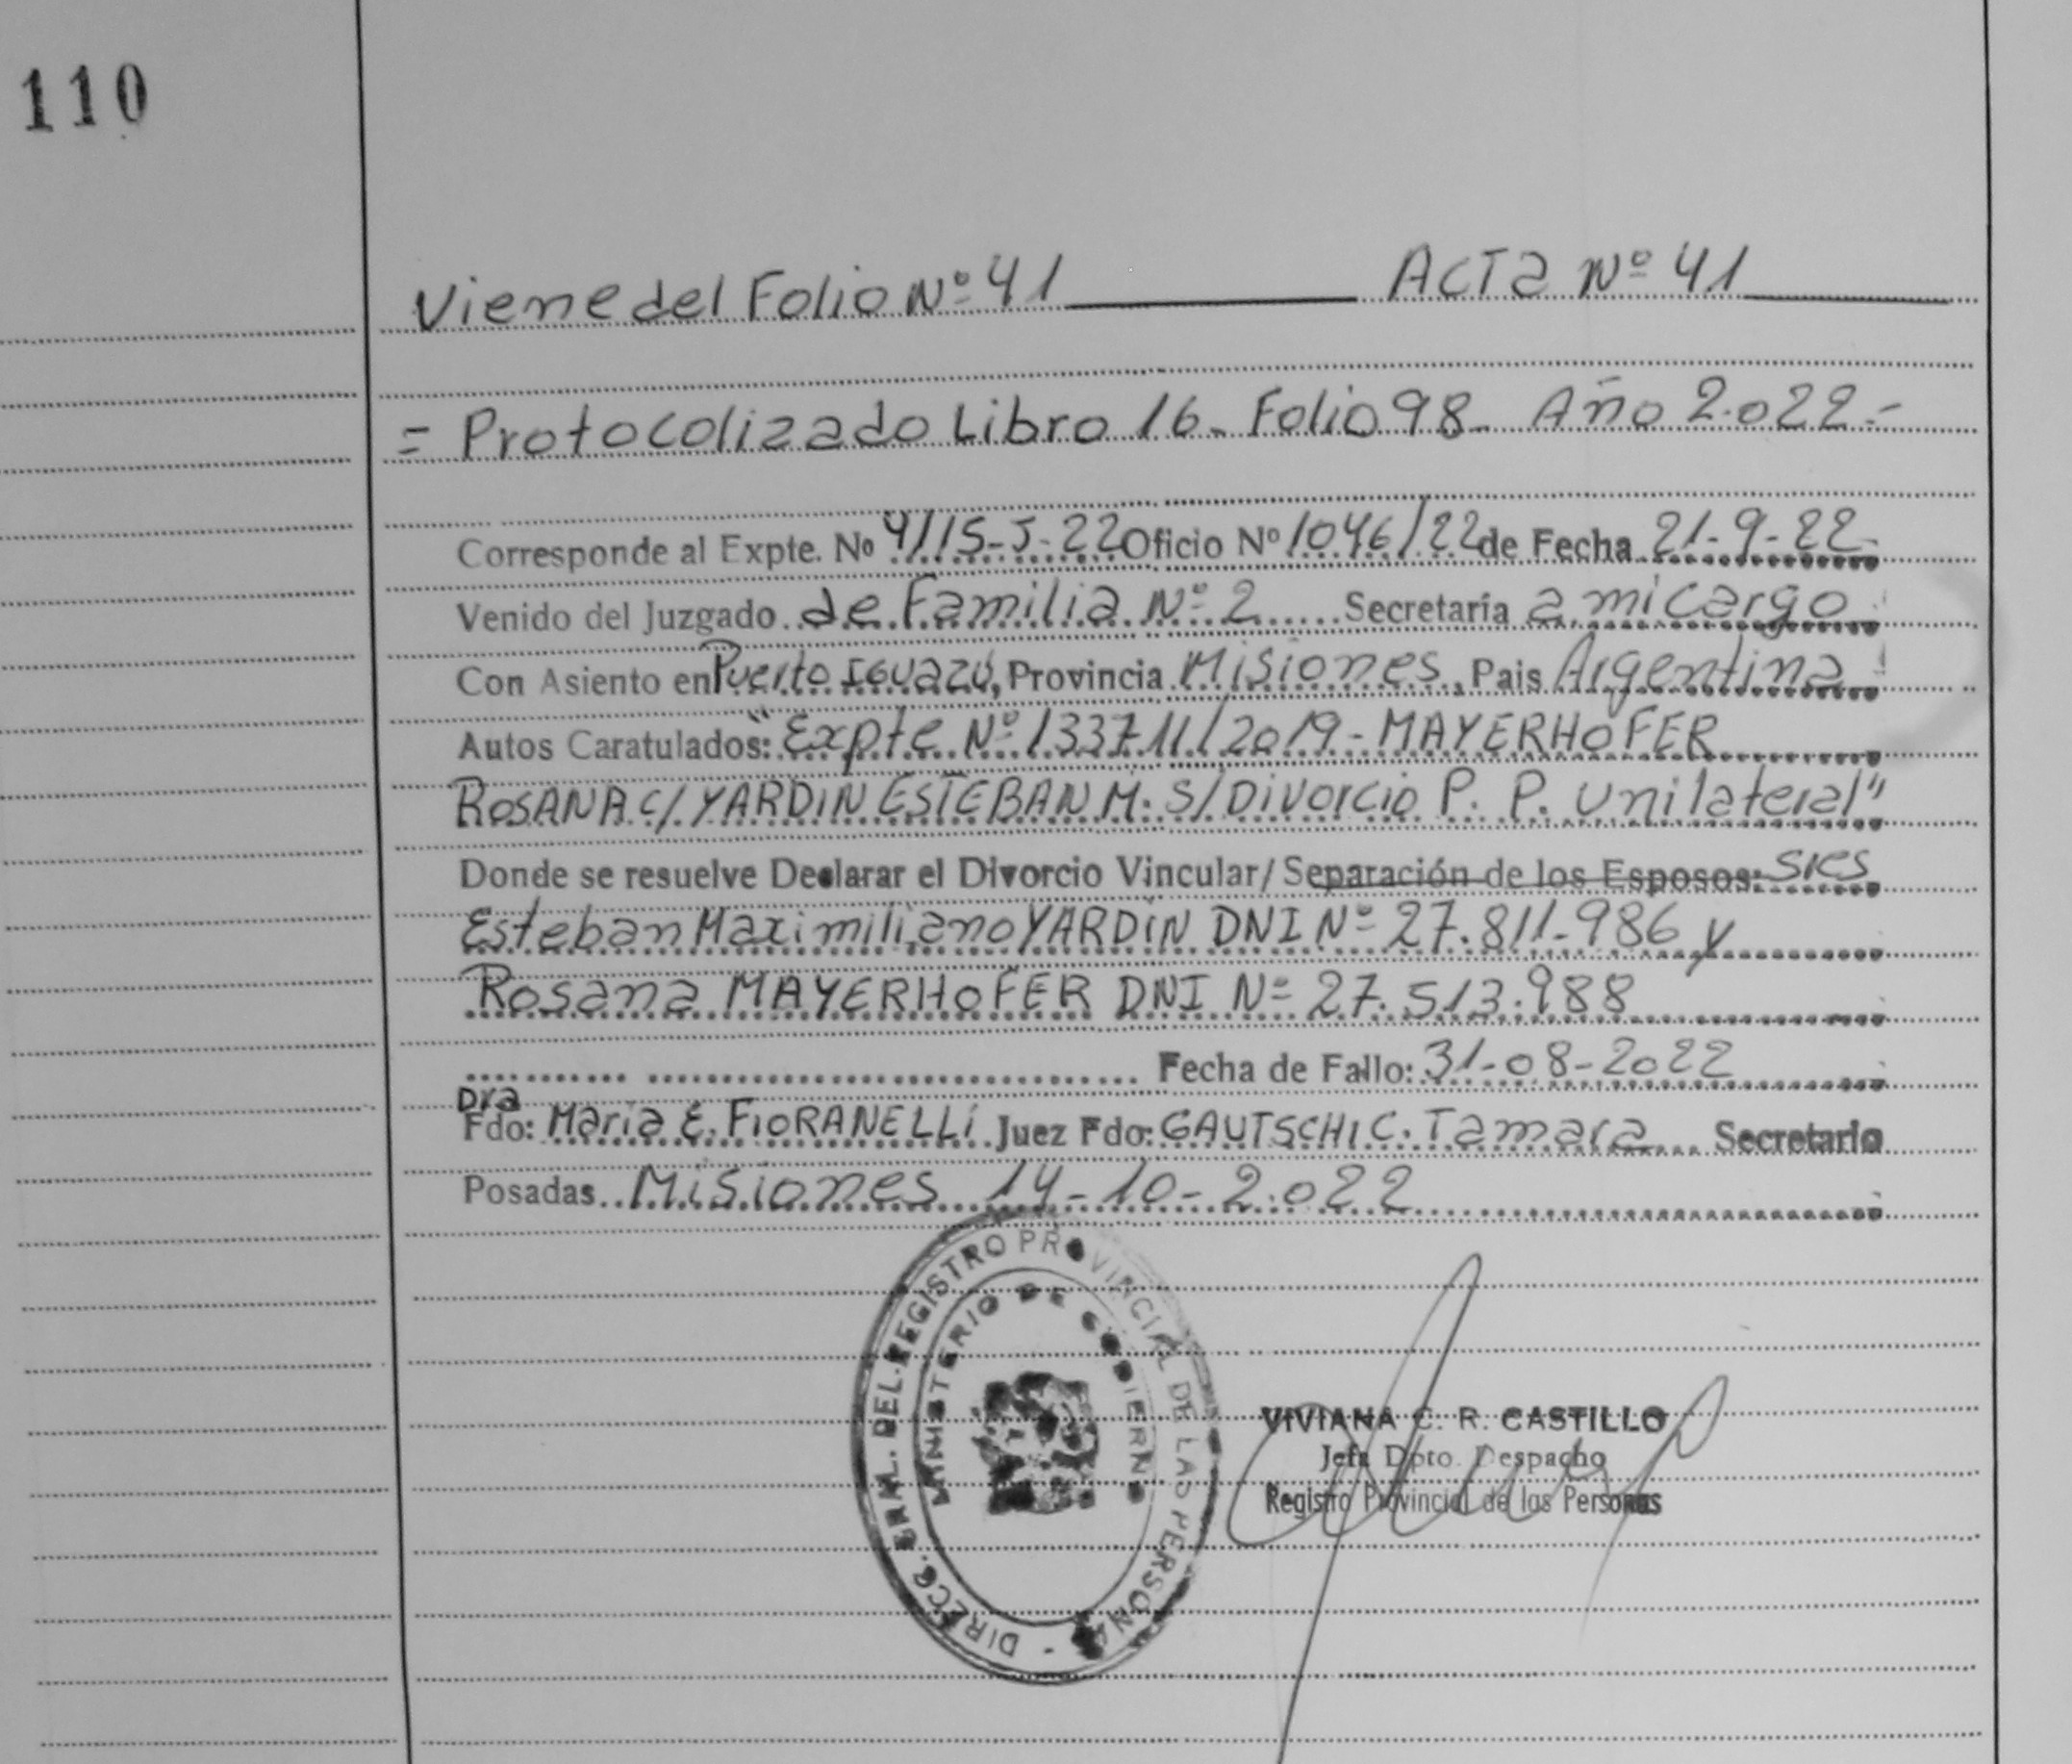 110
Viene del Folio Nº 41 ACTA Nº 41
= Protocolizado Libro 16- Folio 98- Año 2.022.-
Corresponde al Expte. Nº 4115-J-22 Oficio Nº 1046/22 de Fecha 21-9-22-
Venido del Juzgado de Familia Nº 2 Secretaría a mi cargo
Con Asiento en Puerto Iguazú, Provincia Misiones, Pais Argentina
Autos Caratulados: "Expte Nº 133711/2019- MAYERHOFER
ROSANA C/ YARDIN ESTEBAN M. S/ Divorcio P. P. Unilateral"
Donde se resuelve Declarar el Divorcio Vincular/ Separación de los Esposos: Sres
Esteban Maximiliano YARDIN DNI Nº 27.811.986 y
Rosana MAYERHOFER DNI Nº 27.513.988
Fecha de Fallo: 31-08-2022
Dra
Fdo: Maria E. FIORANELLI Juez Fdo: GAUTSCHI C. Tamara Secretario
Posadas Misiones 14-10-2.022
DIRECC. GRAL. DEL REGISTRO PROVINCIAL DE LAS PERSONAS -
MINISTERIO DE GOBIERNO
VIVIANA C. R. CASTILLO
Jefa Dpto. Despacho
Registro Provincial de las Personas